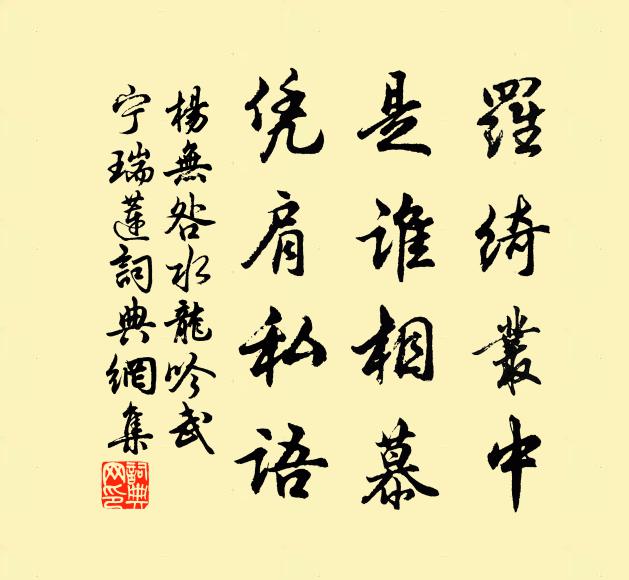 羅綺叢中
是誰相慕
凭肩私語
楊無咎水龍吟武
宁瑞蓮詞典網集
詞典网印